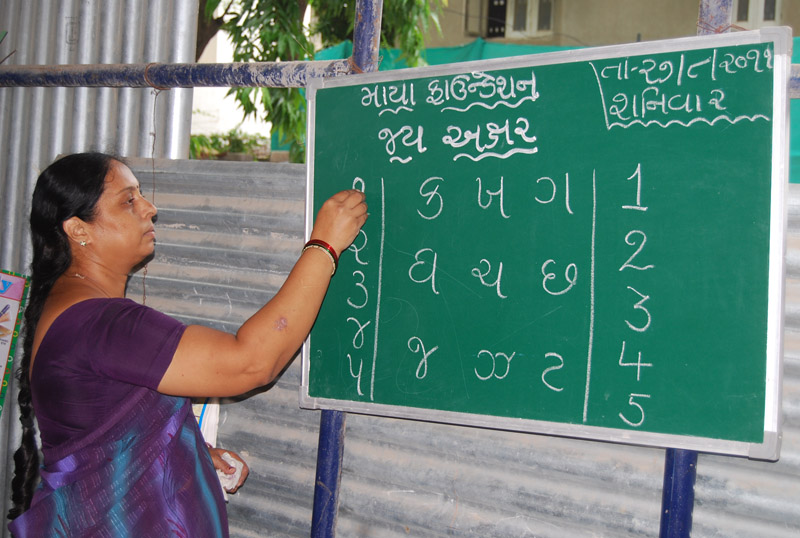 માયા ફાઉન્ડેશન
જય અક્ષર
શનિવાર
૧ ક ખ ગ 1
૨ ઘ ચ છ 2
૩ 3
૪ જ ઝ ટ 4
૫ 5